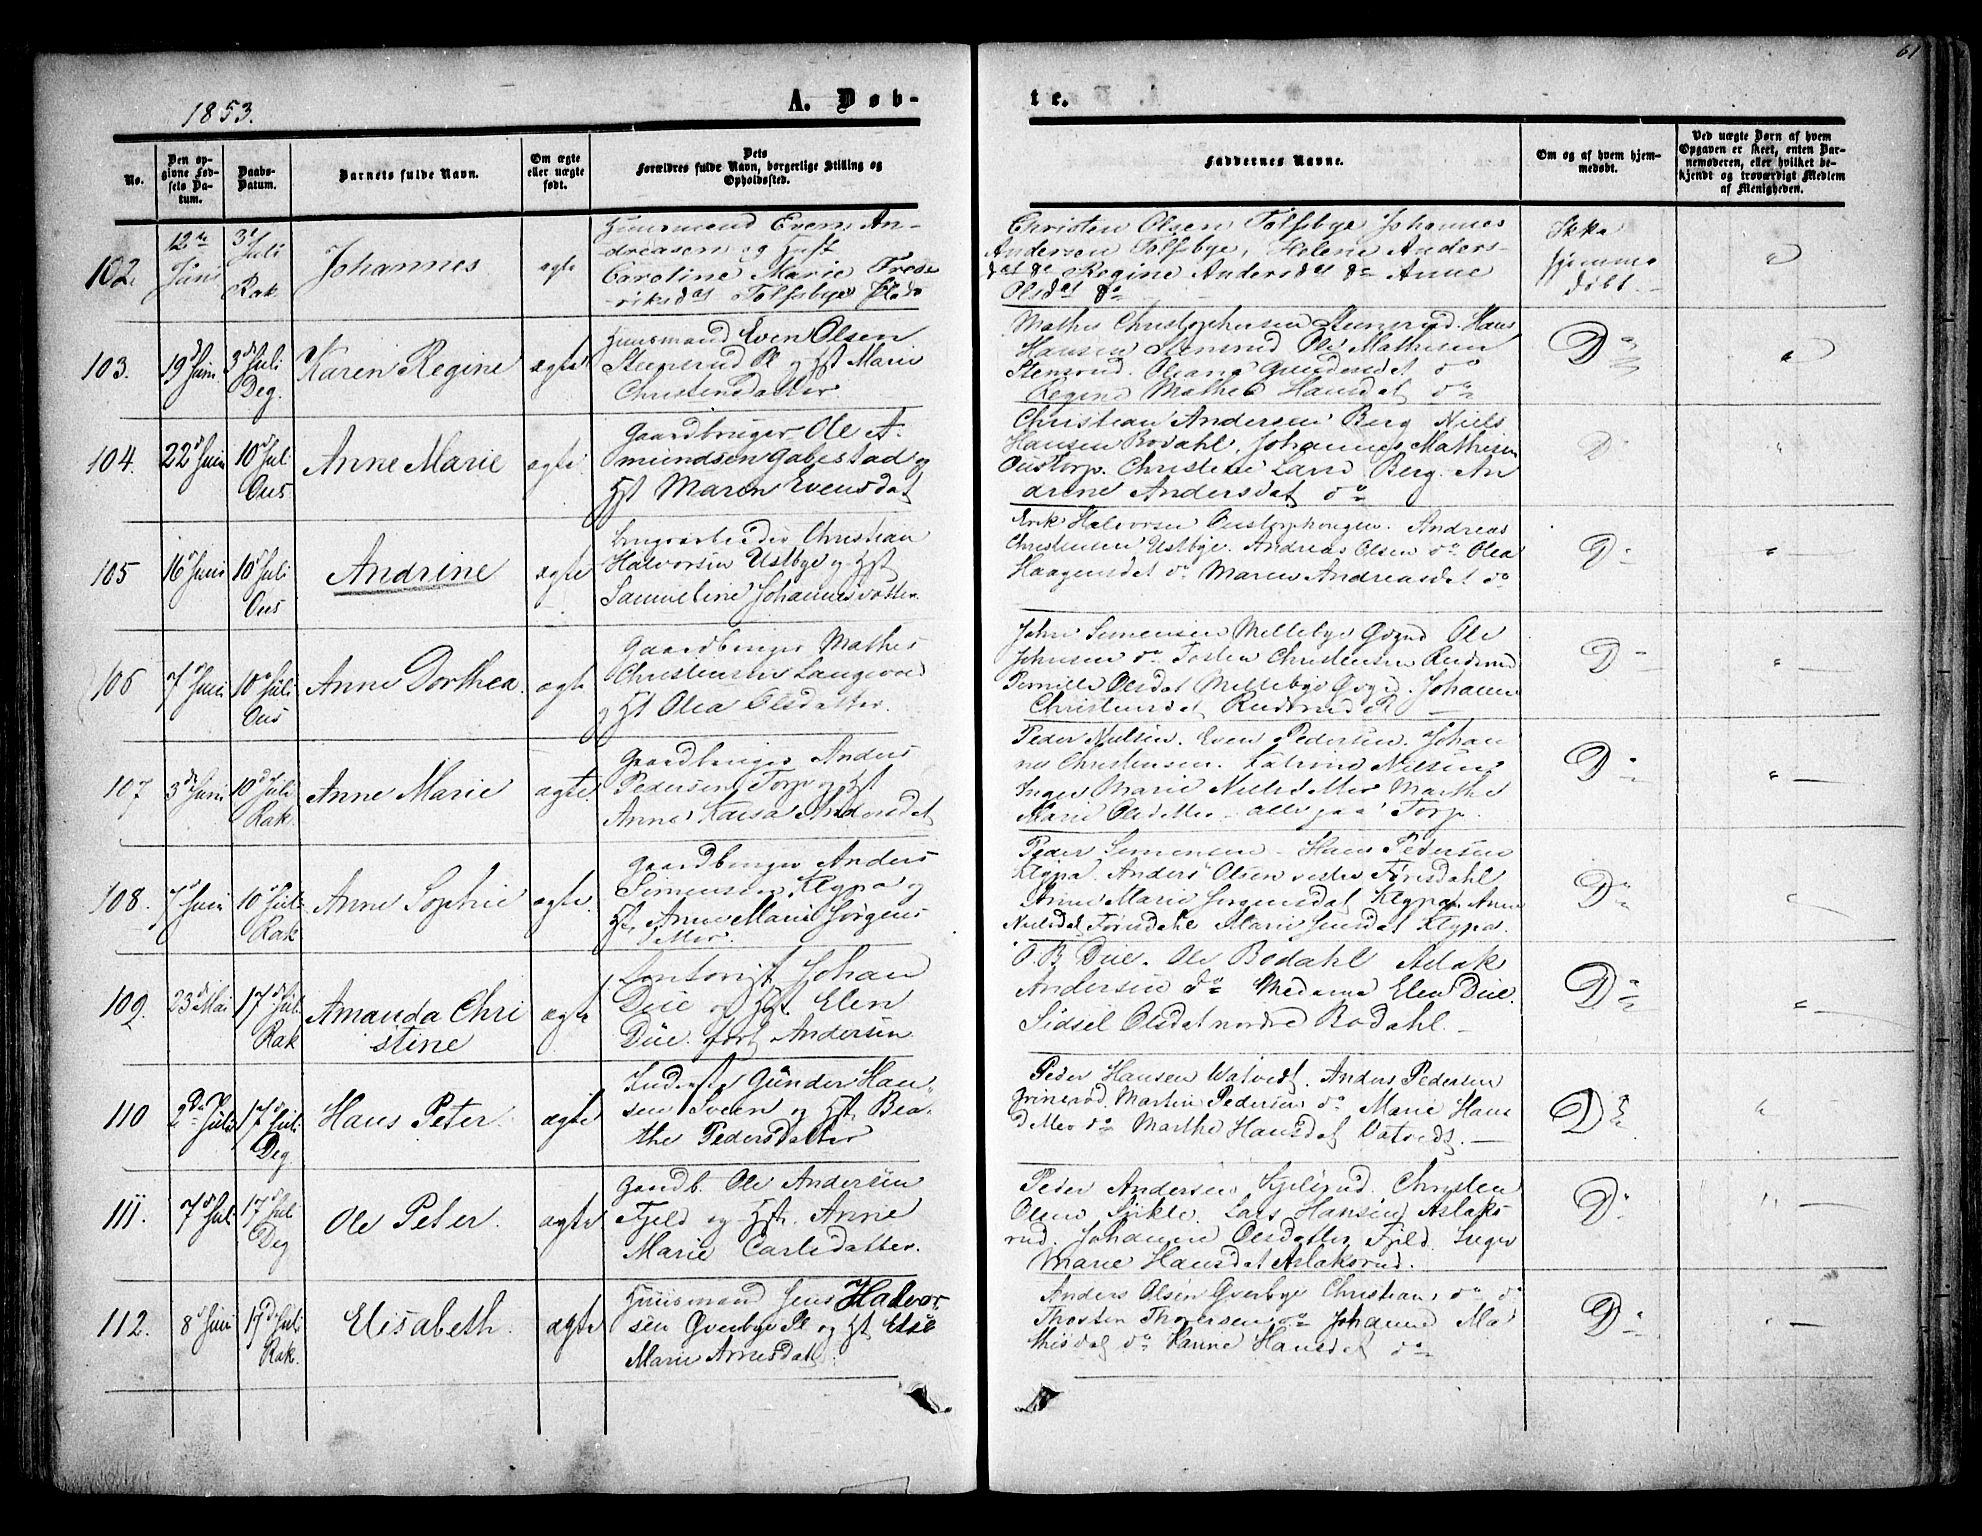 61
1853.
A. Døb-
te.
No.
Den op-
givne Fød-
sels Da-
tum.
Daabs-
Datum.
Barnets fulde Navn.
Om ægte
eller uægte
født.
Dets
Forældres fulde Navn, borgerlige Stilling og
Opholdssted.
Faddernes Navne.
Om og af hvem hjem-
medøbt.
Ved uægte Børn af hvem
Opgaven er skeet, enten Bar-
nemoderen, eller hvilket be-
kjendt og troværdigt Medlem
af Menigheden.
102.
12te
Juni
3d
Juli
Rak.
Johannes
ægte
Huusmand Even An-
dreasen og Hust
Caroline Marie Frede
riksdat Tolfsbye
Christen Olsen Tolfsbye Johannes
Andersen Tolfsbye, Helene Anders-
dat do Regine Andersdat do Anne
Olsdat do
Ikke
hjemme
døbt.
103.
19d Juni
3d Juli
Deg.
Karen Regine
ægte
Huusmand Even Olsen
Steensrud Pl og Hst Marie
Christensdatter.
Mathis Christophersen Steensrud. Hans
Hansen Stensrud Ole Mathisen
Stensrud. Oleana Gundersdat do
Regine Mathea Hansdat do
Do
104.
22d Juni
10d Jul
Ous
Anne Marie
ægte
Gaardbruger Ole A-
mundsen Gabestad og
Hst Maren Evensdat
Christian Andersen Berg Niels
Hansen Bodahl. Johannes Mathisen
Oustorp. Christine Larsd Berg. An
drine Andersdat do
D
105
16d Juni
10d Juli
Ous
Andrine
ægte
Brugsarbeider Christian
Halvorsen Ustbye og Hst
Samueline Johannesdatter.
Erik Halvorsen Oustorphougen. Andreas
Christensen Ustbye. Andreas Olsen do Olea
Haagensdat do Maren Andreasdat do
Do
106
7d Juni
10d Juli
Ous
Anne Dorthea.
ægte
Gaardbruger Mathis
Christensen Langeved
og Hst Olea Olsdatter.
John Simensen Millebye Ole
Johnsen do Tosten Christensen Rudsrud
Pernille Olsdat Millebye Johanne
Christensdat Rudsrud
Do
107
3d Juni
10d Juli
Rak.
Anne Marie
ægte
Gaardbruger Anders
Pedersen Torp og Hst
Anne Kaisa Andersdat
Peder Nielsen. Even Pedersen. Johan
nes Christensen. Katrine Nielsen
Inger Marie Nielsdatter Marthe
Marie Olsdatter alle paa Torp.
Do
108.
7d Juni
10d Juli
Rak
Anne Sophie
ægte.
Gaardbruger Anders
Simensen Klypa og
Hst Anne Marie Jørgens
datter.
Peder Simensen Hans Pedersen
Klypa. Anders Olsen vestre Førisdahl
Anne Marie Jørgensdat Klypa Anne
Nielsdat Førisdahl Marie Jensdat Klypa.
Do
109.
23d Mai
17d Jul.
Rak
Amanda Chri
stine
ægte
Contorist Johan
Düe og Hst Elen
Düe født Andersen
O. B. Düe. Ole Bodahl Aslak
Andersen do Madame Elen Düe.
Sidsel Olsdat nordre Bodahl.
Do
110
2den Juli
17d Juli
Deg
Hans Peter
ægte
Inderst Günder Han-
sen Sveen og Hst. Bea-
the Pedersdatter
Peder Hansen Vatvedt. Anders Pedersen
Grinerød. Martin Pedersen do Marie Hans
datter do Marthe Hansdat Vatvedt.
Do
111.
7d Jul
17d Jul
Deg
Ole Peter.
ægte
Gaardb. Ole Andersen
Fjeld og Hst. Anne
Marie Carlsdatter.
Peder Andersen Kjilsrud. Christen
Olsen Sikle. Lars Hansen Aslaks-
rud. Johanne Olsdatter Fjeld. Inger
Marie Hansdat Aslaksrud.
Do
112.
8d Juni
17d Juli
Rak.
Elisabeth.
ægte
Huusmand Jens Halvor
sen Gverbye Pl og Hst Else
Marie Arnesdat.
Anders Olsen Gverbye Christian do do
Thosten Thoresen do Johanne Ma
thisdat do Karine Hansdat do
Do